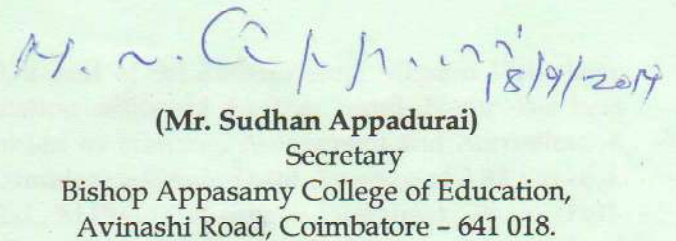 18/9/2014
(Mr. Sudhan Appadurai)
Secretary
Bishop Appasamy College of Education,
Avinashi Road, Coimbatore – 641 018.